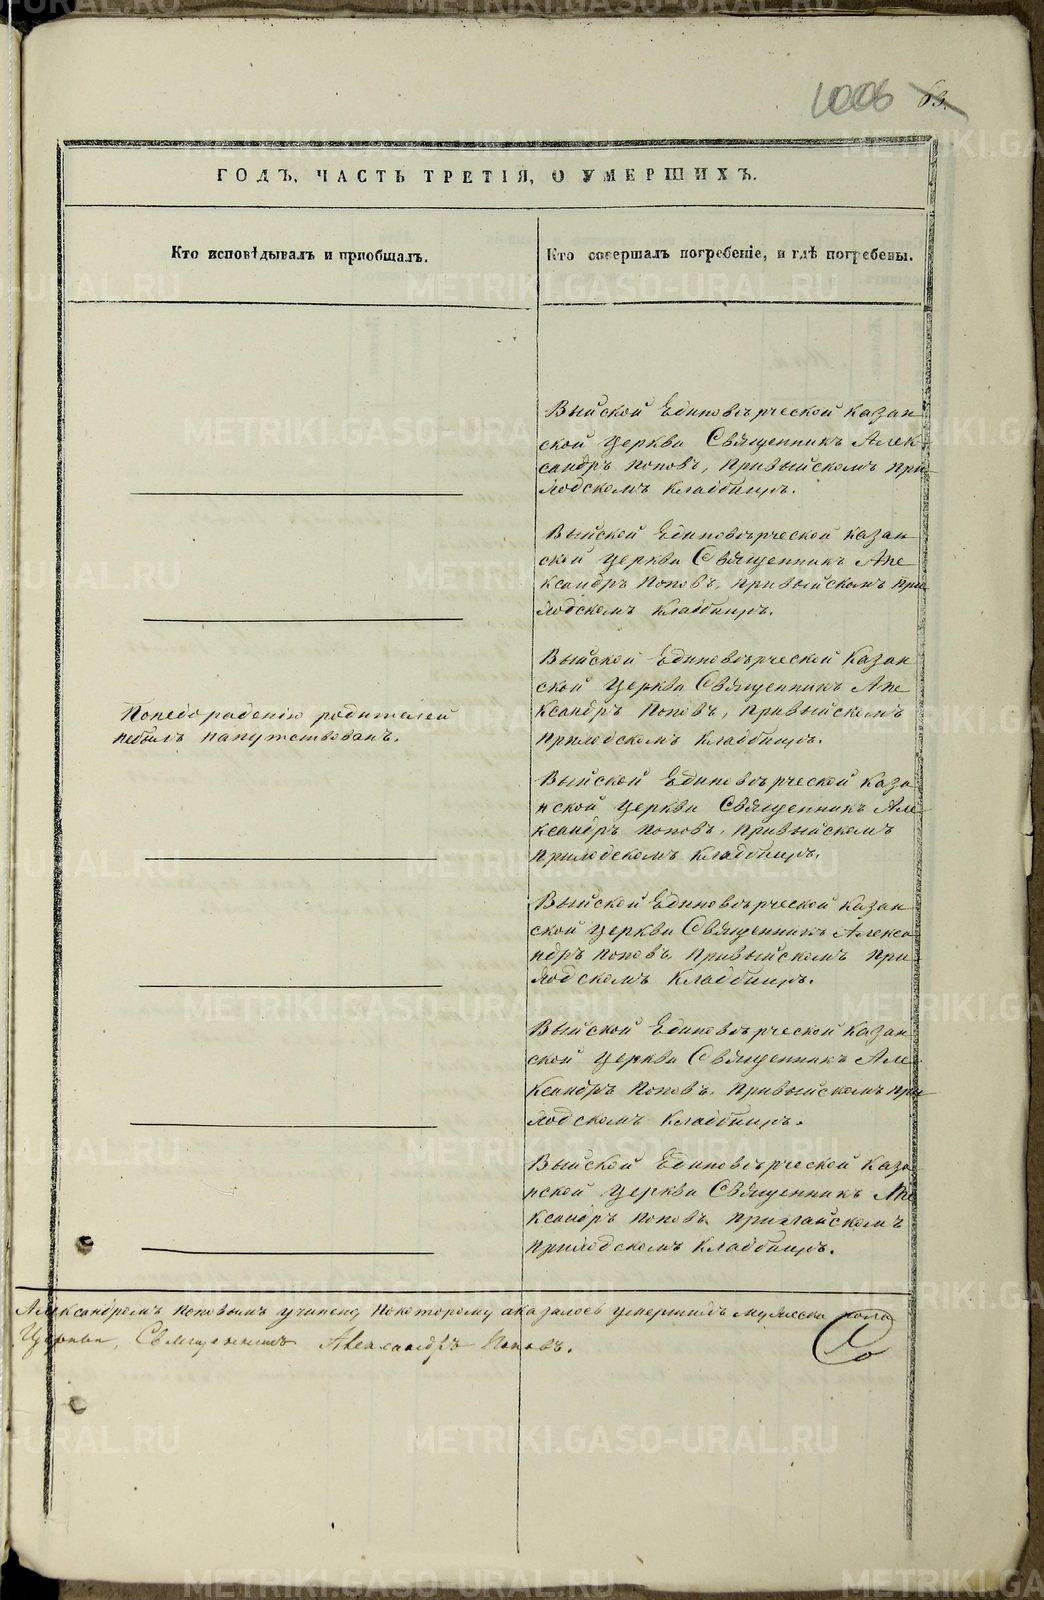 1006 63.
ГОДЪ, ЧАСТЬ ТРЕТІЯ, О УМЕРШИХЪ.
Кто исповѣдывалъ и пріобщалъ.
Кто совершалъ погребеніе, и гдѣ погребены.
Выйской Единовѣрческой Казан
ской Церкви Священникъ Алек
сандръ Поповъ, Привыйскомъ При
ходскомъ Кладбищѣ.
Выйской Единовѣрческой Казан
ской Церкви Священникъ Але
ксандръ Поповъ, Привыйскомъ При
ходскомъ Кладбищѣ.
Понедорадению родителей
небылъ напутствованъ.
Выйской Единовѣрческой Казан
ской Церкви Священникъ Але
ксандръ Поповъ, Привыйскомъ
Приходскомъ Кладбищѣ.
Выйской Единовѣрческой Каза
нской Церкви Священникъ Але
ксандръ Поповъ, Привыйскомъ
Приходскомъ Кладбищѣ.
Выйской Единовѣрческой Казан
ской Церкви Священникъ Алекса
ндръ Поповъ Привыйскомъ При
ходскомъ Кладбищѣ.
Выйской Единовѣрческой Казан
ской Церкви Священникъ Але
ксандръ Поповъ. Привыйскомъ При
ходскомъ Кладбищѣ.
Выйской Единовѣрческой Каза
нской Церкви Священникъ Але
ксандръ Поповъ
Приходскомъ Кладбищѣ.
Александромъ Поповымъ учинено, покоторому оказалось умершихъ мужеска пола
Церкви, Священникъ Александръ Поповъ.
METRIKI.GASO-URAL.RU